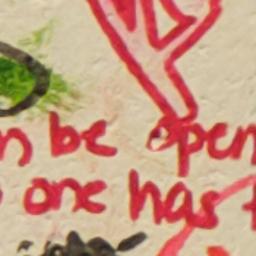 n be open
one has t